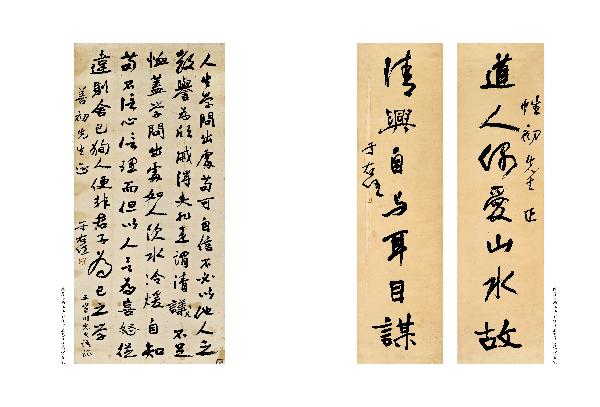 道人偶愛山水故
初先生正
清興自与耳目謀
于右任
人生學問出處苟可自信不必以他人之
毀譽為欣戚得失 謂清議不足
恤蓋學問出處如人飲水冷煖自知
苟不信心信理而但以人言為喜怒從
違則舍己狥人便非君子為己之學
善初先生正
于右任